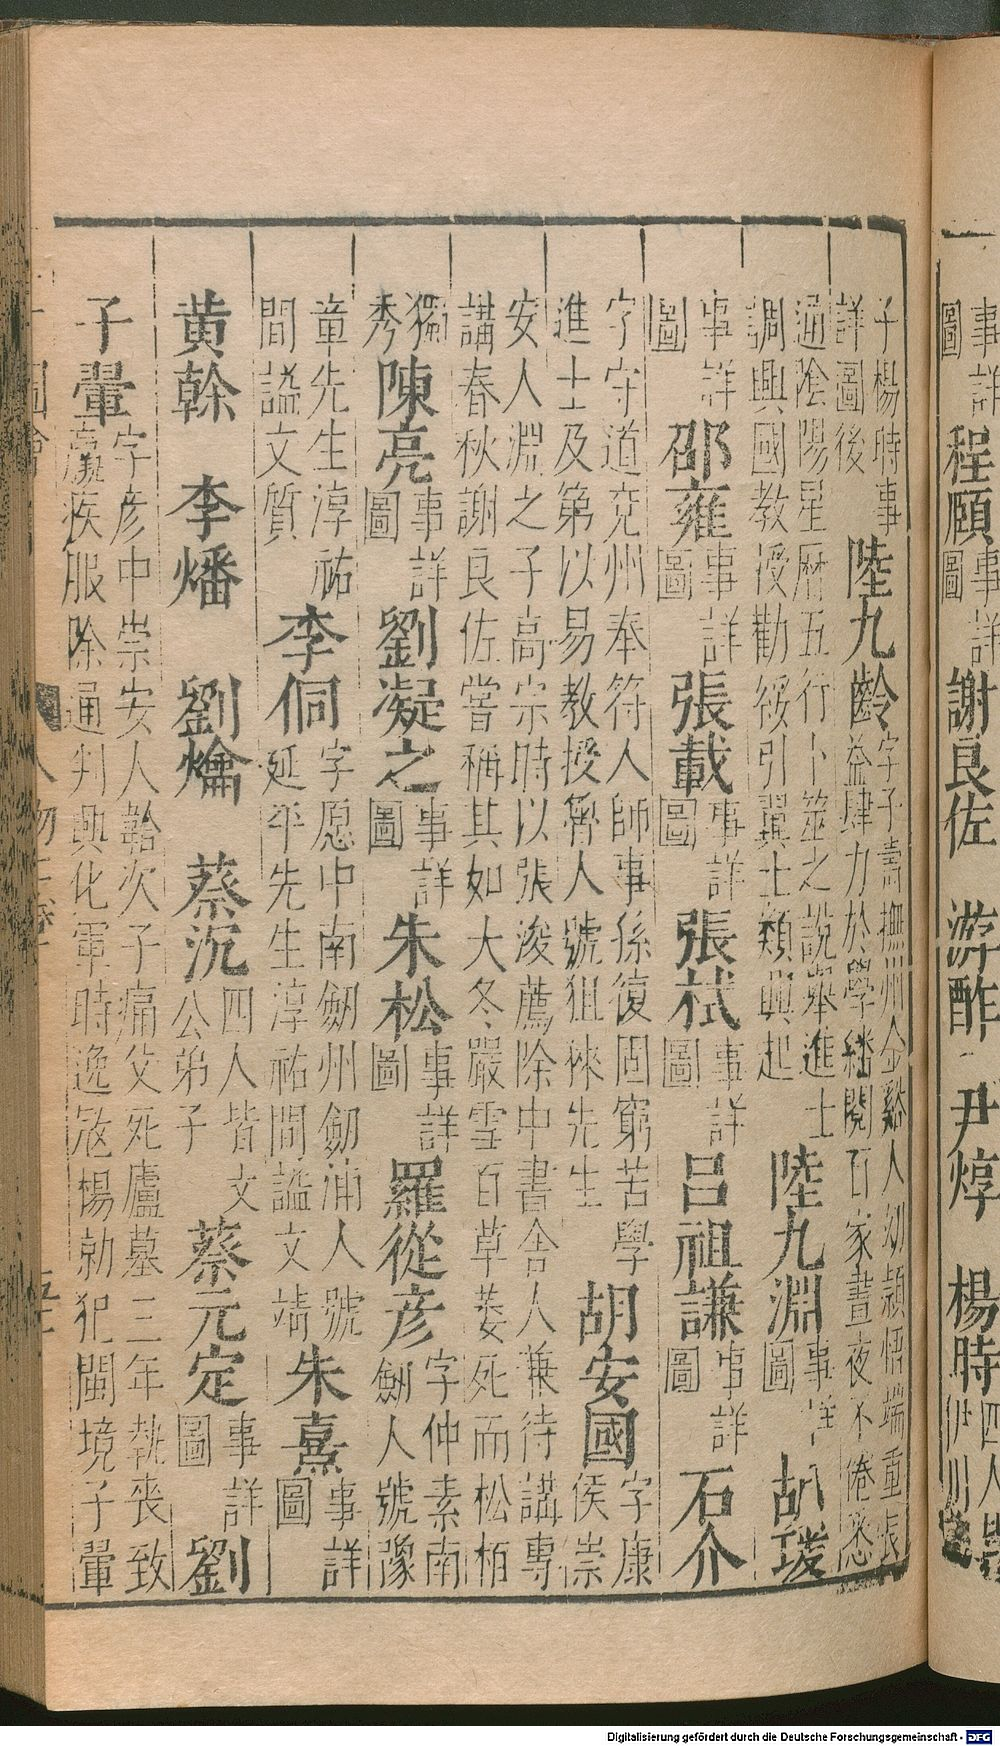 事詳
圖
程頤
事詳
圖
謝良佐 游酢 尹焞 楊時
四人
伊川
子楊時事
詳圖後
陸九齡
字子壽撫州金谿人幼穎悟端重長
益肆力於學繙閱百家晝夜不倦悉
通陰陽星曆五行卜筮之說舉進士
調興國教授勸綏引翼士類興起
陸九淵
事詳
圖
胡瑗
事詳
圖
邵雍
事詳
圖
張載
事詳
圖
張栻
事詳
圖
呂祖謙
事詳
圖
石介
字守道兗州奉符人師事孫復固窮苦學
進士及第以易教授魯人號徂徠先生
胡安國
字康
侯崇
安人淵之子高宗時以張浚薦除中書舍人兼待講專
講春秋謝良佐嘗稱其如大冬嚴雪百草萎死而松栢
獨
秀
陳亮
事詳
圖
劉凝之
事詳
圖
朱松
事詳
圖
羅從彥
字仲素南
劍人號豫
章先生淳祐
間謚文質
李侗
字愿中南劒州劒浦人號
延平先生淳祐間謚文靖
朱熹
事詳
圖
黄榦 李燔 劉爚 蔡沉
四人皆文
公弟子
蔡元定
事詳
圖
劉
子翬
字彥中崇安人韐次子痛父死廬墓三年執喪致
羸疾服除通判興化軍時逸寇楊勍犯閩境子翬